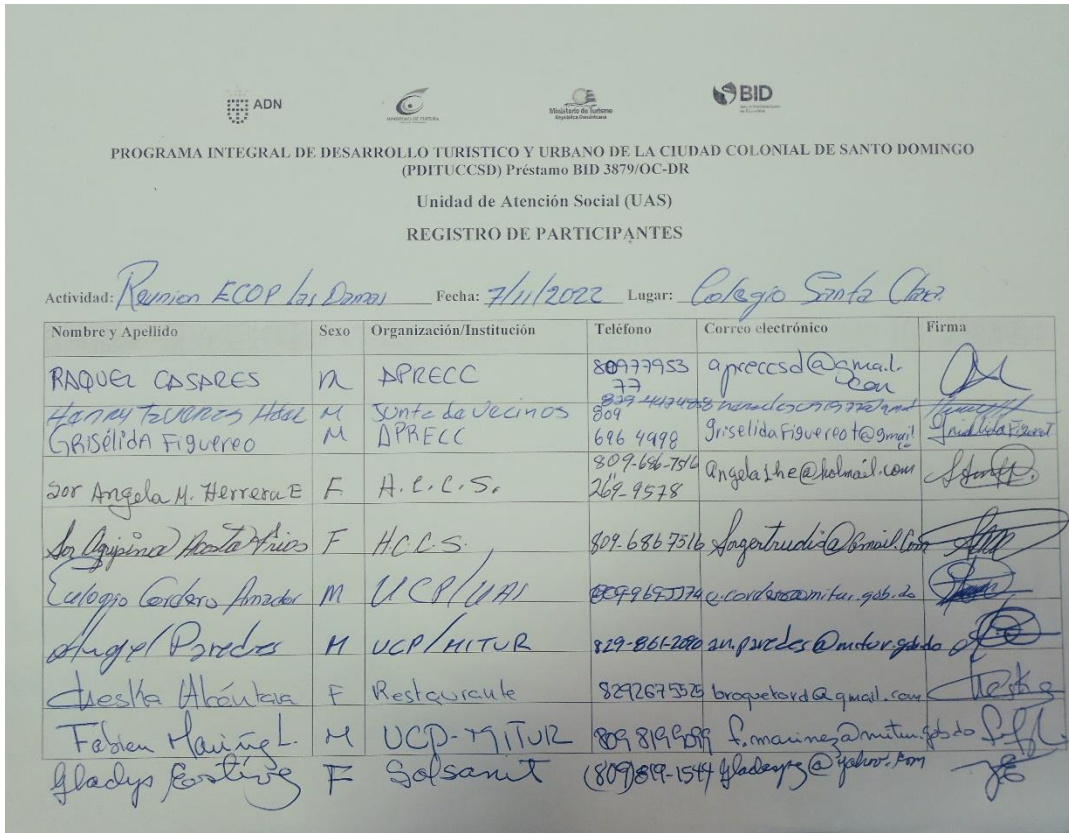 ADN
MINISTERIO DE CULTURA
Ministerio de Turismo
República Dominicana
BID
PROGRAMA INTEGRAL DE DESARROLLO TURISTICO Y URBANO DE LA CIUDAD COLONIAL DE SANTO DOMINGO
(PDITUCCSD) Préstamo BID 3879/OC-DR
Unidad de Atención Social (UAS)
REGISTRO DE PARTICIPANTES
Actividad: Reunion ECOP las Damas Fecha: 7/11/2022 Lugar: Colegio Santa Clara.
Nombre y Apellido Sexo Organización/Institución Teléfono Correo electrónico Firma
RAQUEL CASARES M APRECC 80977953 apreccsd@gmail.
77 com
Henry M Junta de Vecinos
809
GRISÉLIDA FIGUEREO M APRECC 696 4998 griselidafiguereot@gmail
809-686-7516
Sor Angela M. Herrera E F H.C.C.S. 269-9578 angelashe@hotmail.com
Sor Agripina Acosta Frias F H.C.C.S. 809-686 7516 Sorgertrudis@Gmail.Com
Eulogio Cordero Amador M UCP/UAS e.cordero@mitur.gob.do
Angel Paredes M UCP/MITUR 829-861-2090 an.paredes@mitur.gob.do
Cheska Alcántara F Restaurante 8292675525 broquetard@gmail.com Cheska
Fabien M UCP-MITUR 809 819 f.marinez@mitur.gob.do
Gladys F Solsanit (809)819-1544 @yahoo.com